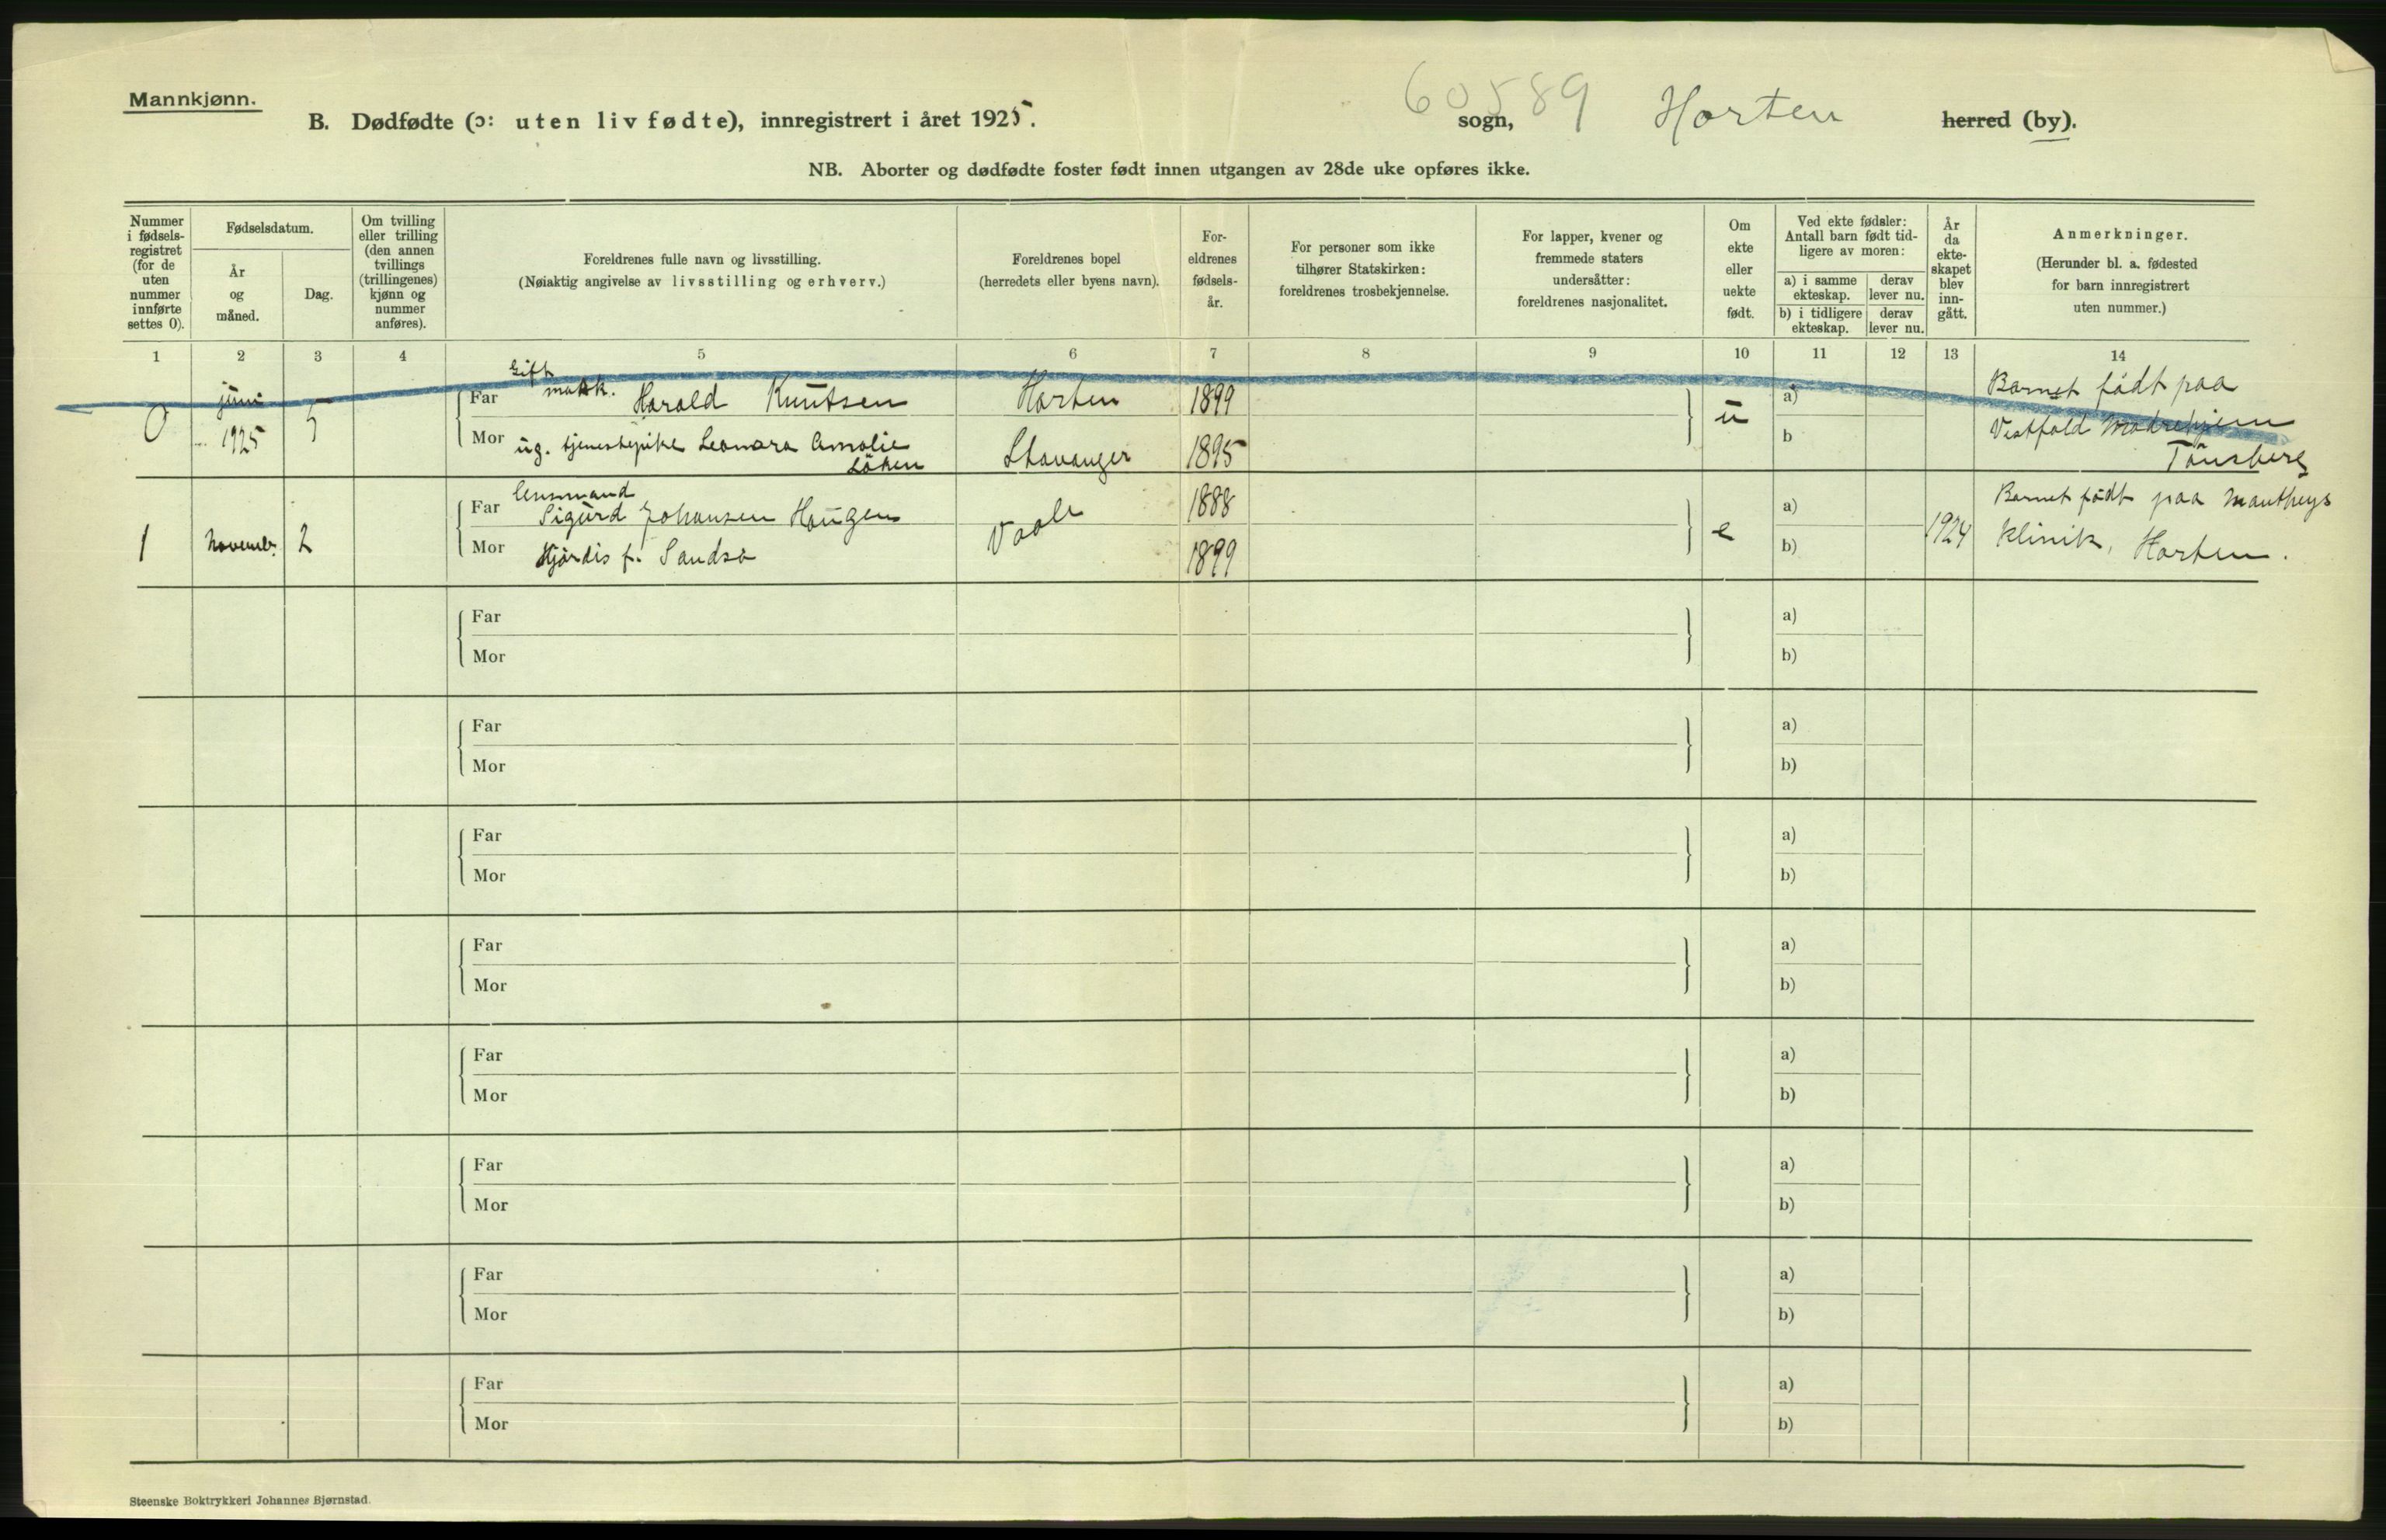 Mannkjønn.
B. Dødfødte (ɔ: uten liv fødte), innregistrert i året 1925.
60589
sogn,
Horten
herred (by).
NB. Aborter og dødfødte foster født innen utgangen av 28de uke opføres ikke.
Nummer i fødsels-registret (for de uten nummer innførte settes 0).
Fødselsdatum.
År og måned.
Dag.
Om tvilling eller trilling (den annen tvillings (trillingenes) kjønn og nummer anføres).
Foreldrenes fulle navn og livsstilling.
(Nøiaktig angivelse av livsstilling og erhverv.)
Foreldrenes bopel
(herredets eller byens navn).
For-eldrenes fødsels-år.
For personer som ikke tilhører Statskirken: foreldrenes trosbekjennelse.
For lapper, kvener og fremmede staters undersåtter: foreldrenes nasjonalitet.
Om ekte eller uekte født.
Ved ekte fødsler: Antall barn født tid-ligere av moren:
a) i samme ekteskap.
derav lever nu.
b) i tidligere ekteskap.
derav lever nu.
År da ekte-skapet blev inn-gått.
Anmerkninger.
(Herunder bl. a. fødested for barn innregistrert uten nummer.)
1 2 3 4 5 6 7 8 9 10 11 12 13 14
0 juni 1925 5
Gift
Far Harald Knutsen Horten 1899
Mor ug. tjenestepike Leonora Amalie Löken Stavanger 1895
u
a)
b
Barnet födt paa
Vestfold Mödrehjem
Tönsberg
1 Novemb. 2
Lensmand
Far Sigurd Johansen Haugen Vaale 1888
Mor Hjördis f. Sandsö 1899
e
a)
b)
1924
Barnet födt paa Mantheys
Klinik, Horten.
Far a)
Mor b)
Far a)
Mor b)
Far a)
Mor b)
Far a)
Mor b)
Far a)
Mor b)
Far a)
Mor b)
Far a)
Mor b)
Far a)
Mor b)
Steenske Boktrykkeri Johannes Bjørnstad.